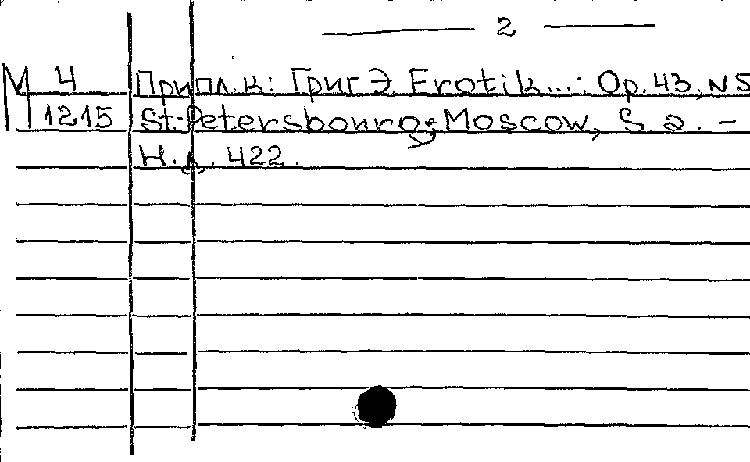 — 2 —
М 4 Приплк: Григ Э. Erotik...: Op.43, N5
1215 St.-Petersbourg; Moscow, S. a. –
Н.д. 422.